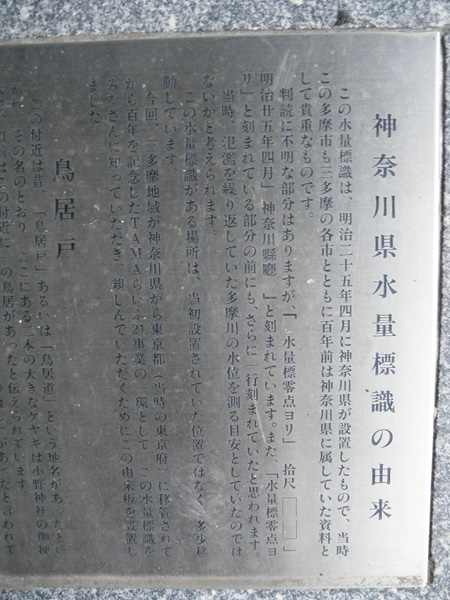 神奈川県水量標識の由来
この水量標識は、明治二十五年四月に神奈川県が設置したもので、当時
この多摩市も三多摩の各市とともに百年前は神奈川県に属していた資料と
して貴重なものです。
判読に不明な部分はありますが、「水量標零点ヨリ 拾尺□□」
明治廿五年四月」神奈川縣廳 」と刻まれています。また、「水量標零点ヨ
リ」と刻まれている部分の前にも、さらに一行刻まれていたと思われます。
当時、氾濫を繰り返していた多摩川の水位を測る目安としていたのでは
ないかと考えられます。
この水量標識がある場所は、当初設置されていた位置ではなく、多少移
動しています。
今回、三多摩地域が神奈川県から東京都（当時の東京府）に移管されて
から百年を記念したTAMAらいふ21事業の一環として、この水量標識を
みなさんに知っていただき、親しんでいただくためにこの由来板を設置し
ました。
鳥居戸
この付近は昔、「鳥居戸」あるいは「鳥居道」という地名があったとい
その名のとおり、ここにある二本の大きなケヤキは小野神社の御神
以前はこの付近に の鳥居があったと伝えられています。
があったと言われて